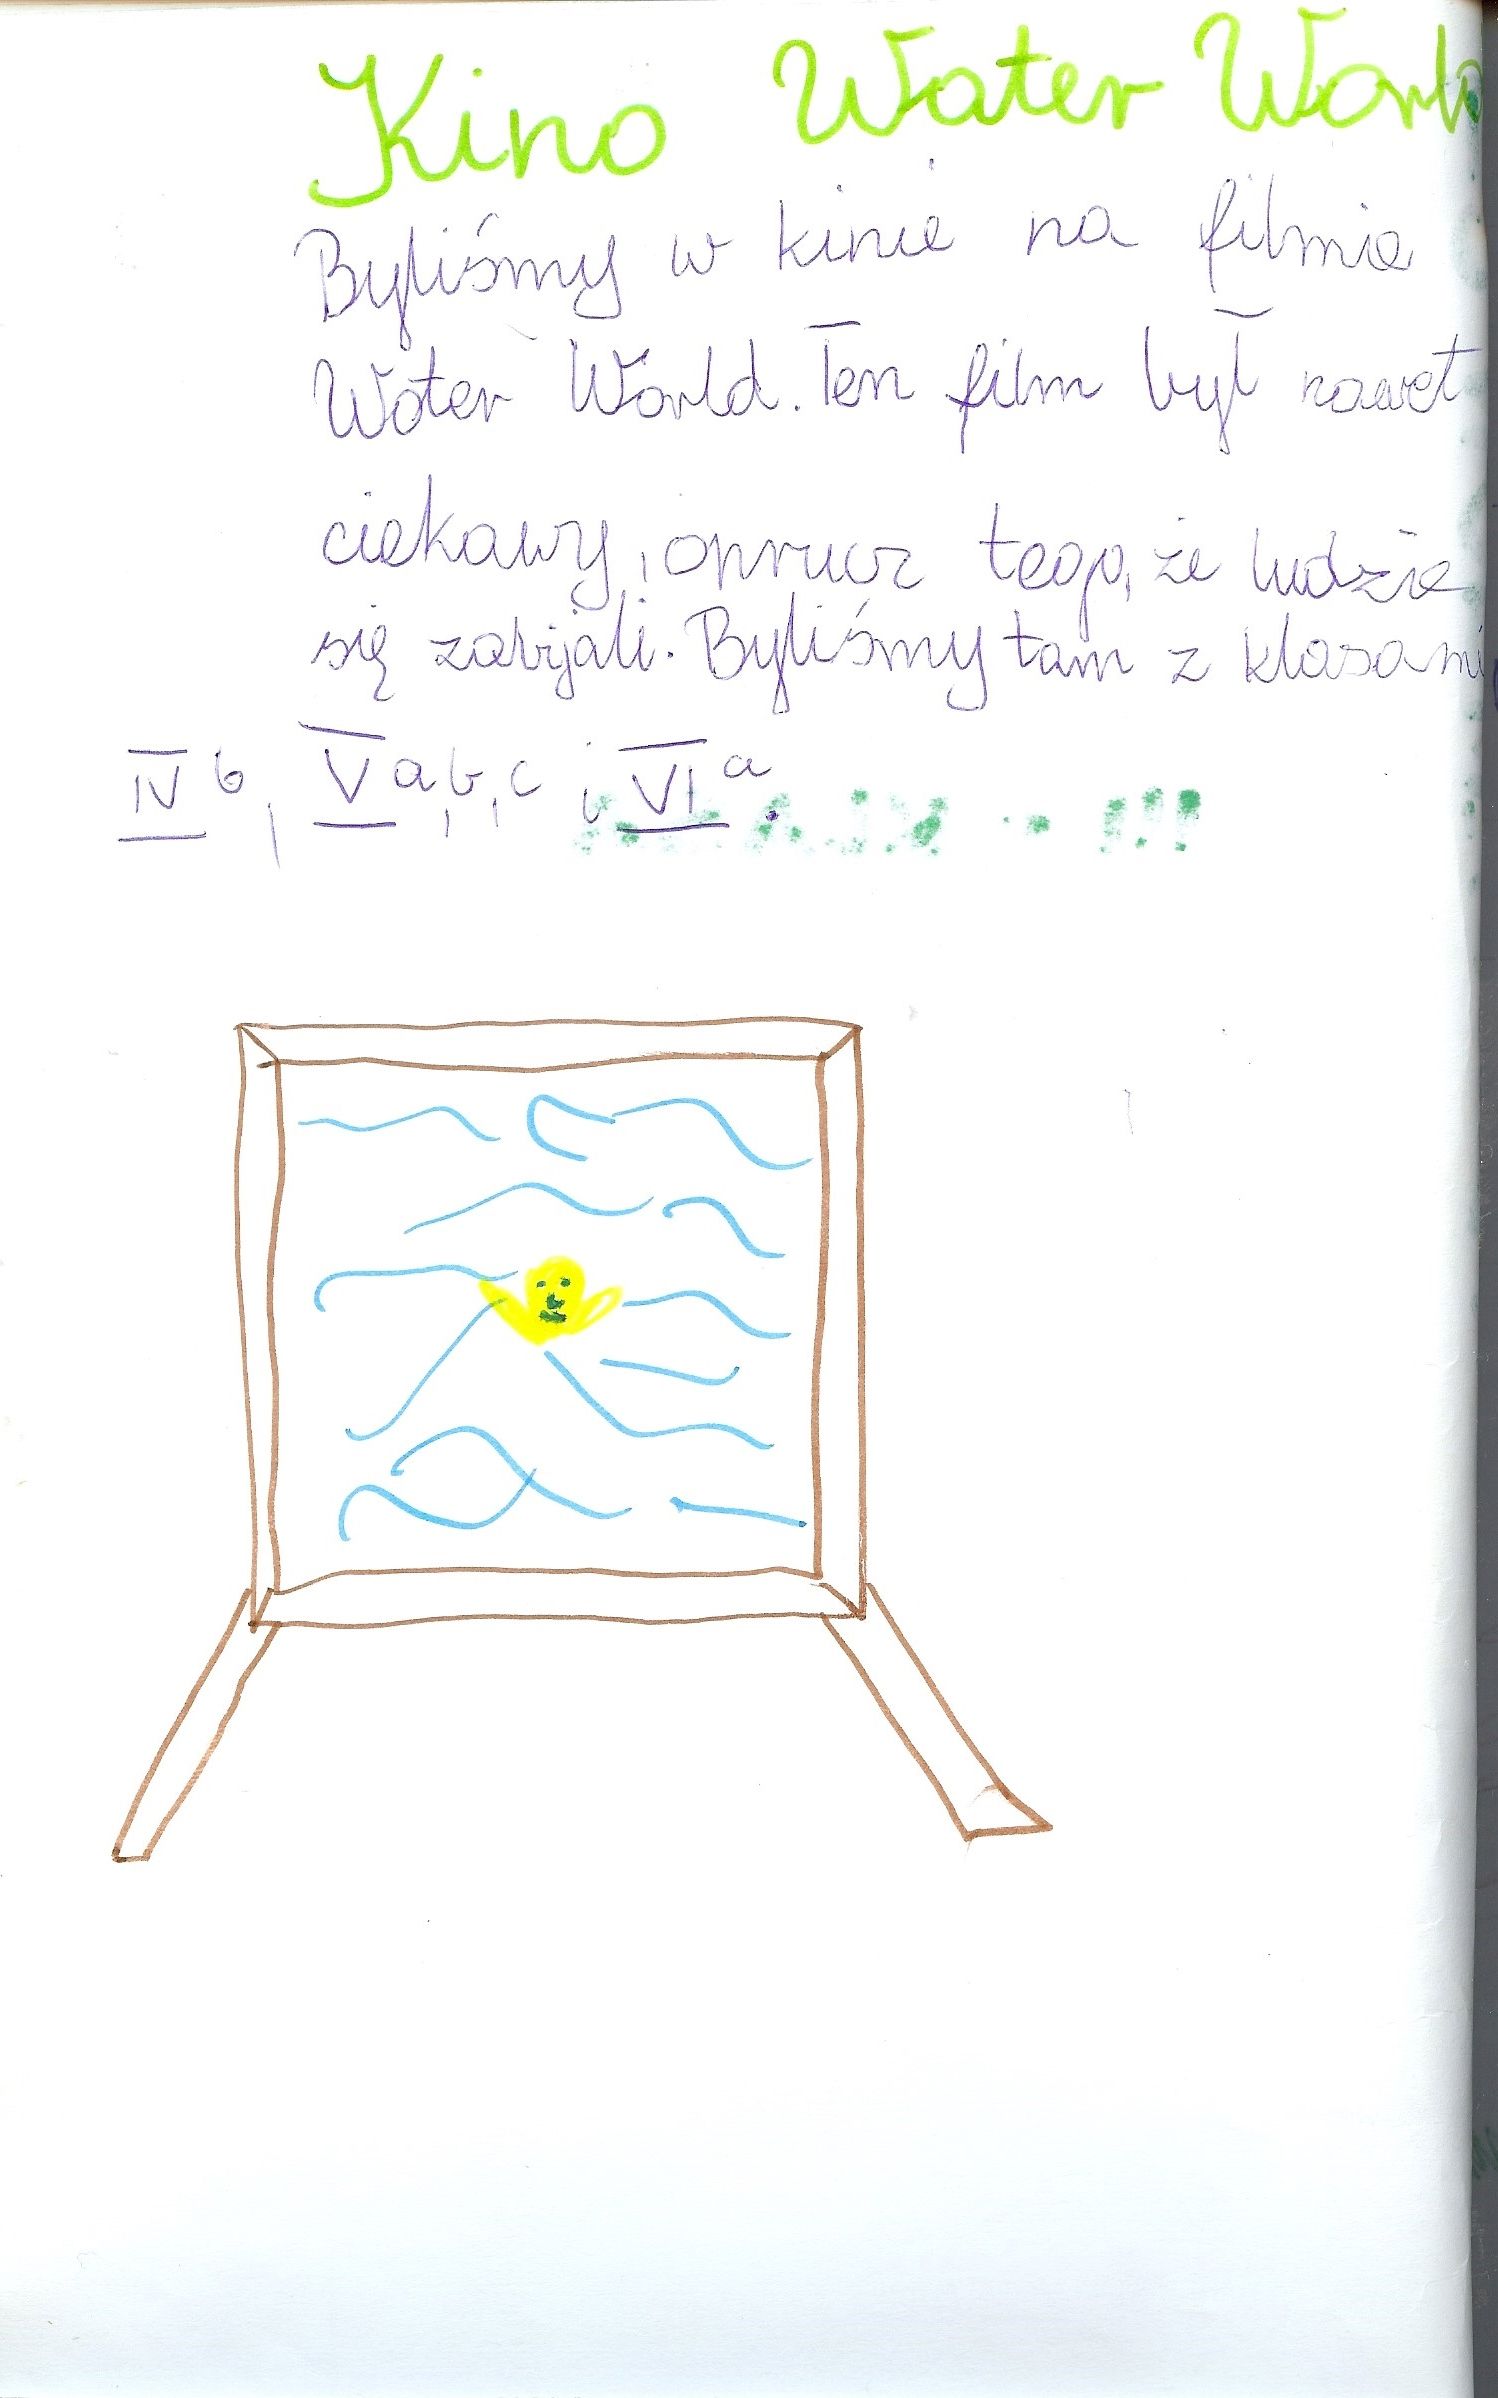 Kino Water World
Byliśmy w kinie na filmie
Water World. Ten film był nawet
ciekawy, oprucz tego, że ludzie
się zabijali. Byliśmy tam z klasami
IV b, V a, b, c i VI a.